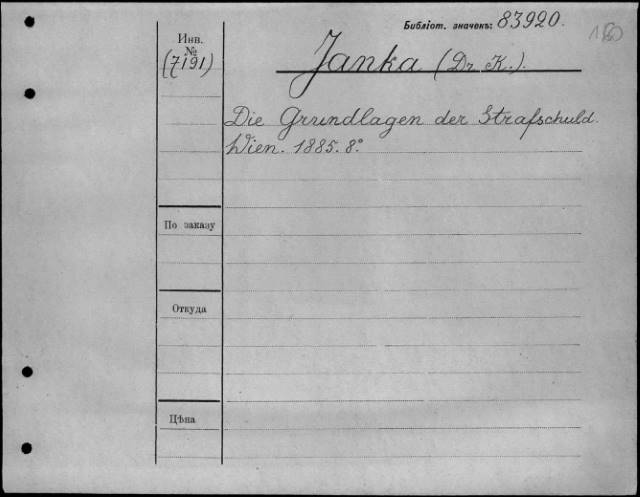 Библіот. значекъ: 83920.
Инв.
№
(7191)
Janka (Dr. K.).
Die Grundlagen der Strafschuld.
Wien. 1885. 8°
По заказу
Откуда
Цѣна